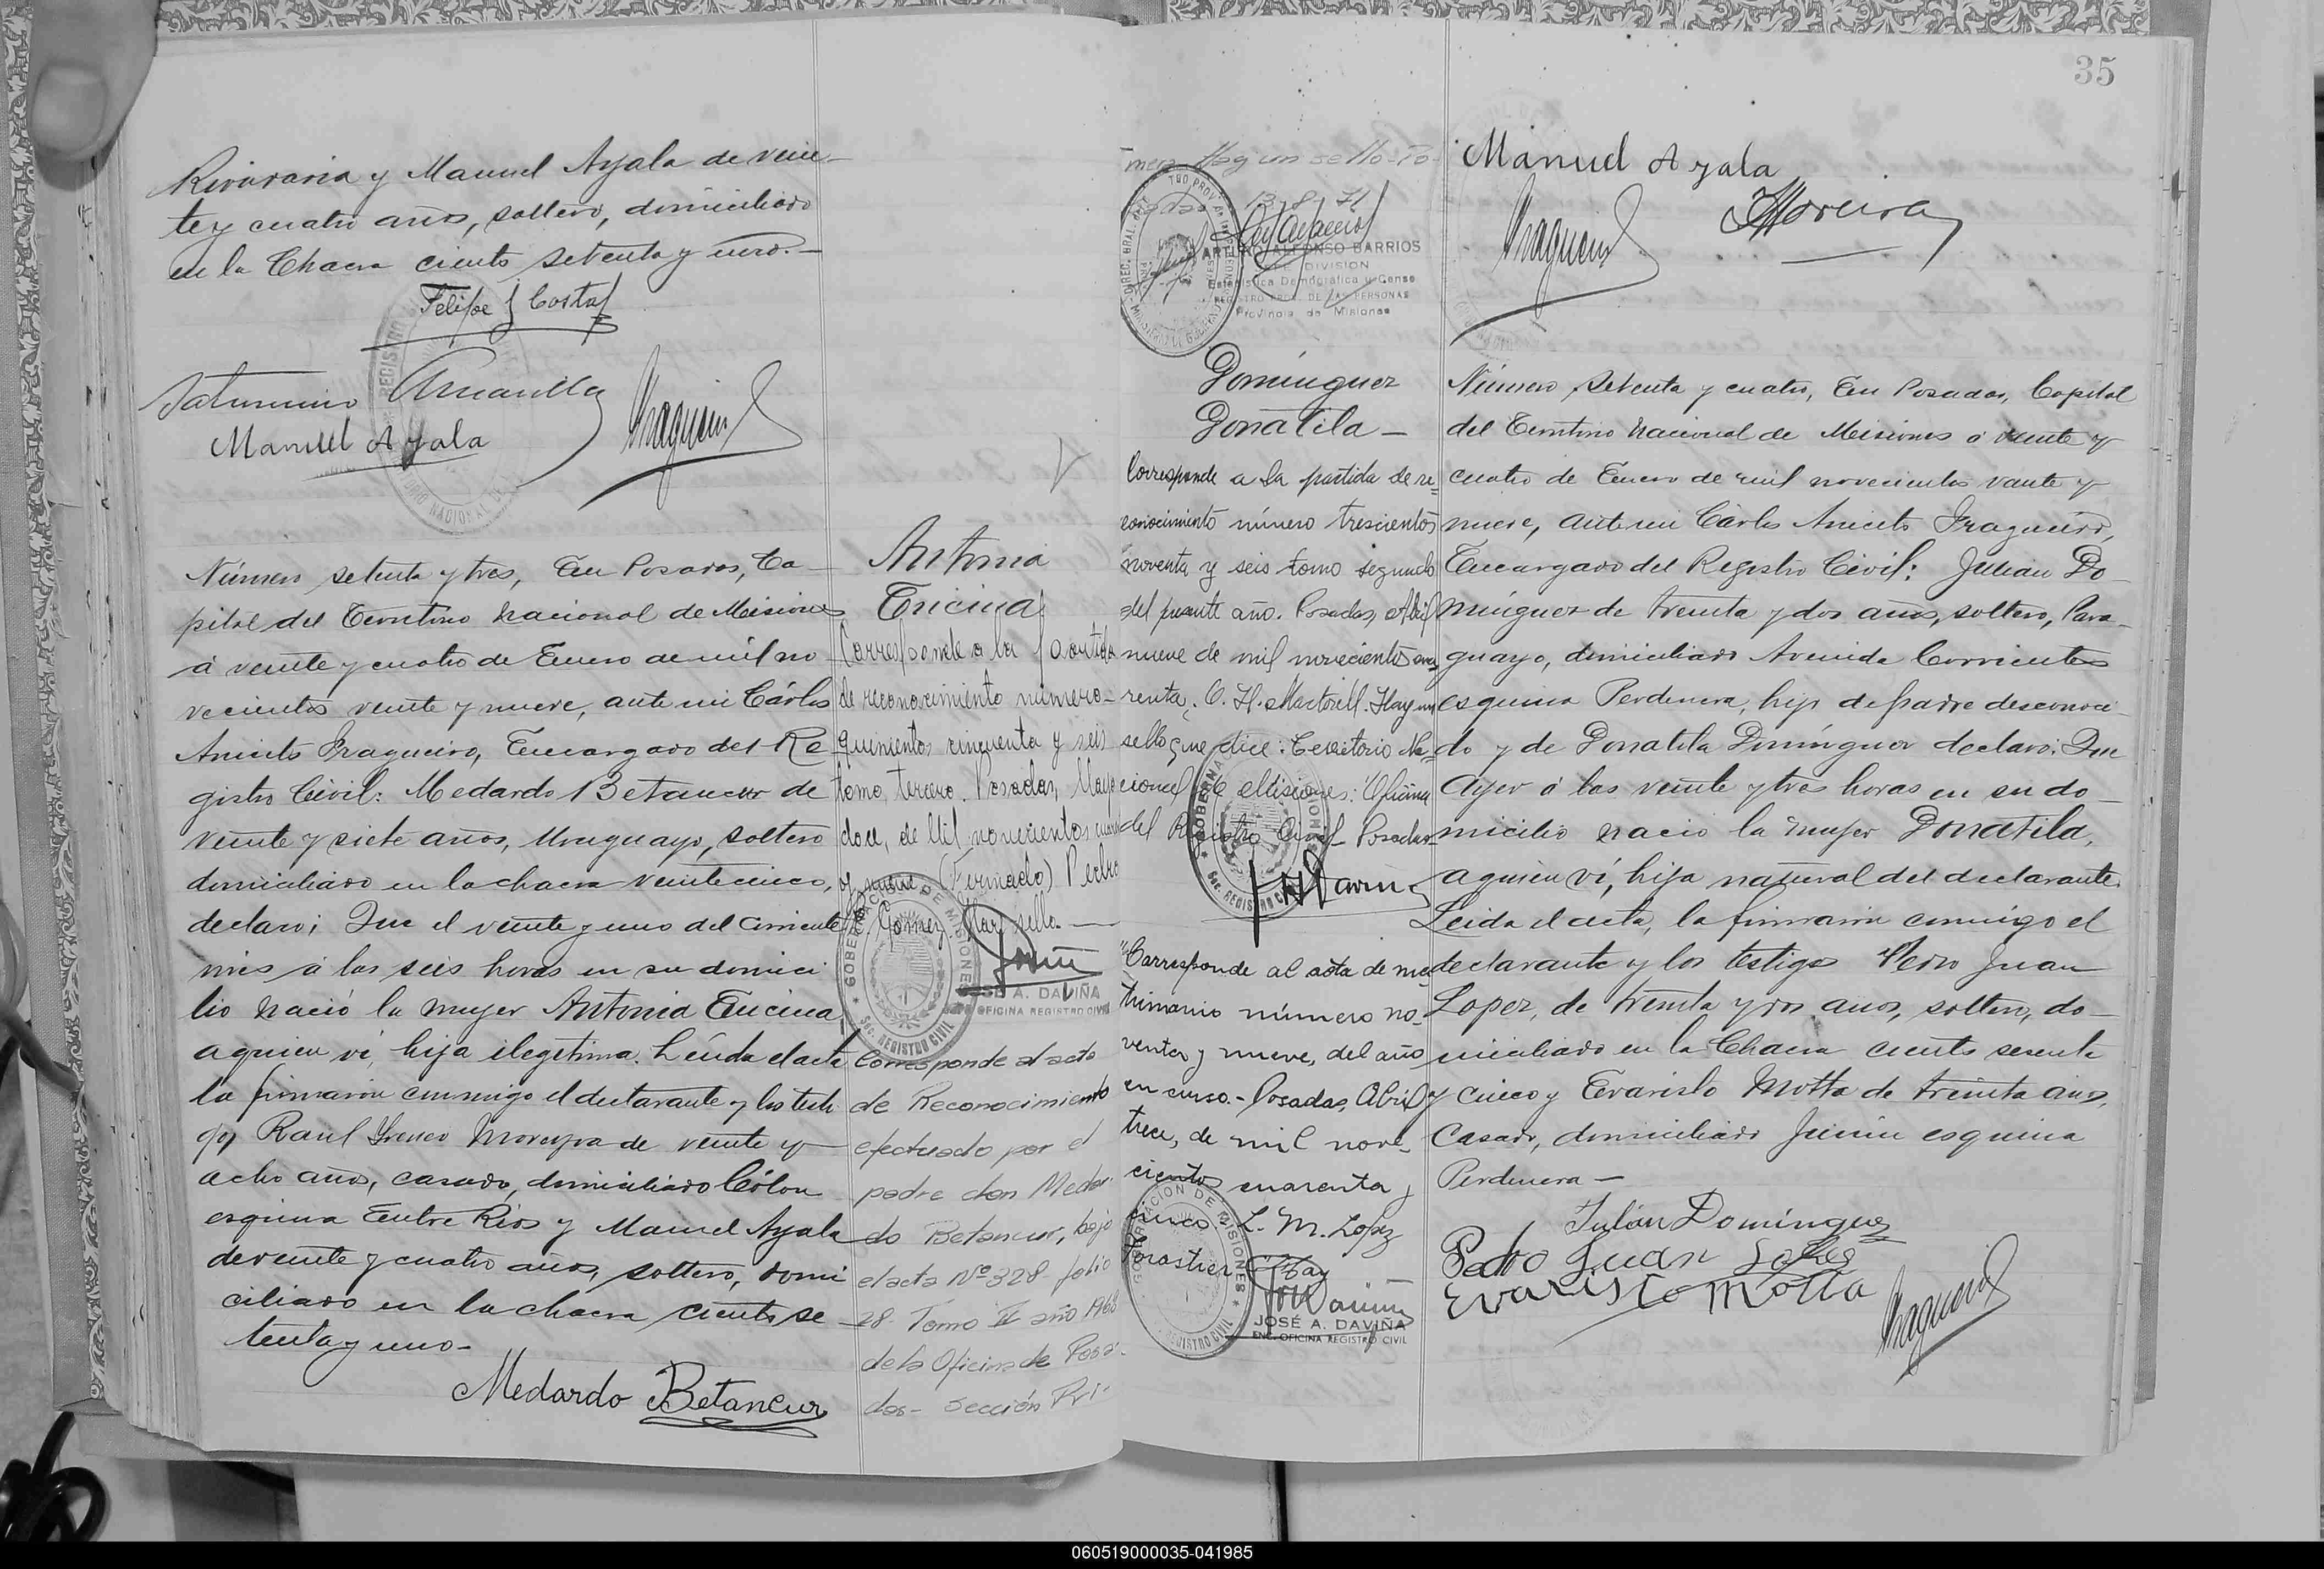 Rivadavia y Manuel Ayala de vein-
te y cuatro años, soltero, domiciliado
en la Chacra ciento setenta y uno.-
Felipe Costa
Saturnino Amarilla
Manuel Ayala
Número setenta y tres, En Posadas, Ca-
pital del Territorio Nacional de Misiones
á veinte y cuatro de Enero de mil no
vecientos veinte y nueve, ante mi Cárlos
Aniceto Fragueiro, Encargado del Re-
gistro Civil: Medardo Betancur de
veinte y siete años, Uruguayo, soltero
domiciliado en la chacra veinte cinco,
declaró; Que el veinte y uno del corriente
mes á las seis horas en su domici
lio nació la mujer Antonia Encina
a quien ví, hija ilegítima. Leída el acta
la firmaron conmigo el declarante y los testi
gos Raul Ireneo Moreyra de veinte y
ocho años, casado, domiciliado Cólon
esquina Entre Ríos y Manuel Ayala
de veinte y cuatro años, soltero, domi
ciliado en la chacra ciento se-
tenta y uno-
Medardo Betancur
Antonia
Encina
Corresponde a la partida
de reconocimiento número-
quinientos cincuenta y seis
tomo tercero. Posadas, Mayo
doce, de Mil novecientos
y nueve (Firmado) Pedro
Gomez Hay sello.-
GOBERNACION DE MISIONES
Sec. REGISTRO CIVIL
JOSÉ A. DAVIÑA
OFICINA REGISTRO CIVIL
Corresponde al acta
de Reconocimiento
efectuado por el
padre don Medar-
do Betancur, bajo
el acta Nº 328 folio
28. Tomo II año 1968
de la Oficina de Posa-
das- sección Pri-
35
mera Hay un sello-Po-
sadas 13/8/71
ARTURO ALFONSO BARRIOS
JEFE DIVISION
Estadística Demográfica y Censo
REGISTRO PROV. DE LAS PERSONAS
Provincia de Misiones
Manuel Ayala
Domínguez
Donatila-
Corresponde a la partida de re-
conocimiento número trescientos
noventa y seis tomo segundo
del presente año. Posadas, Abril
nueve de mil novecientos cua
renta. C. H. Martorell. Hay un
sello que dice: Territorio Na-
cional de Misiones: Oficina
del Registro Civil- Posadas-
"Corresponde al acta de ma
trimonio número no-
venta y nueve, del año
en curso.- Posadas, Abril
trece, de mil nove-
cientos cuarenta y
cinco. L. M. Lopez
Forastier Hay
JOSÉ A. DAVIÑA
ENC. OFICINA REGISTRO CIVIL
Número setenta y cuatro, En Posadas, Capital
del Territorio Nacional de Misiones á veinte y
cuatro de Enero de mil novecientos veinte y
nueve, ante mi Cárlos Aniceto Fragueiro,
Encargado del Registro Civil: Julian Do-
mínguez de treinta y dos años, soltero, Para-
guayo, domiciliado Avenida Corrientes
esquina Perdenera, hijo de padre desconoci-
do y de Donatila Domínguez declaró: Que
Ayer á las veinte y tres horas en su do-
micilio nació la mujer Donatila,
a quien ví, hija natural del declarante.
Leída el acta, la firmaron conmigo el
declarante y los testigos Pedro Juan
Lopez, de treinta y dos años, soltero, do-
miciliado en la Chacra ciento sesenta
y cinco y Evaristo Motta de treinta años,
Casado, domiciliado Junín esquina
Perdenera-
Julián Domínguez
Pedro Juan Lopez
Evaristo Motta
060519000035-041985